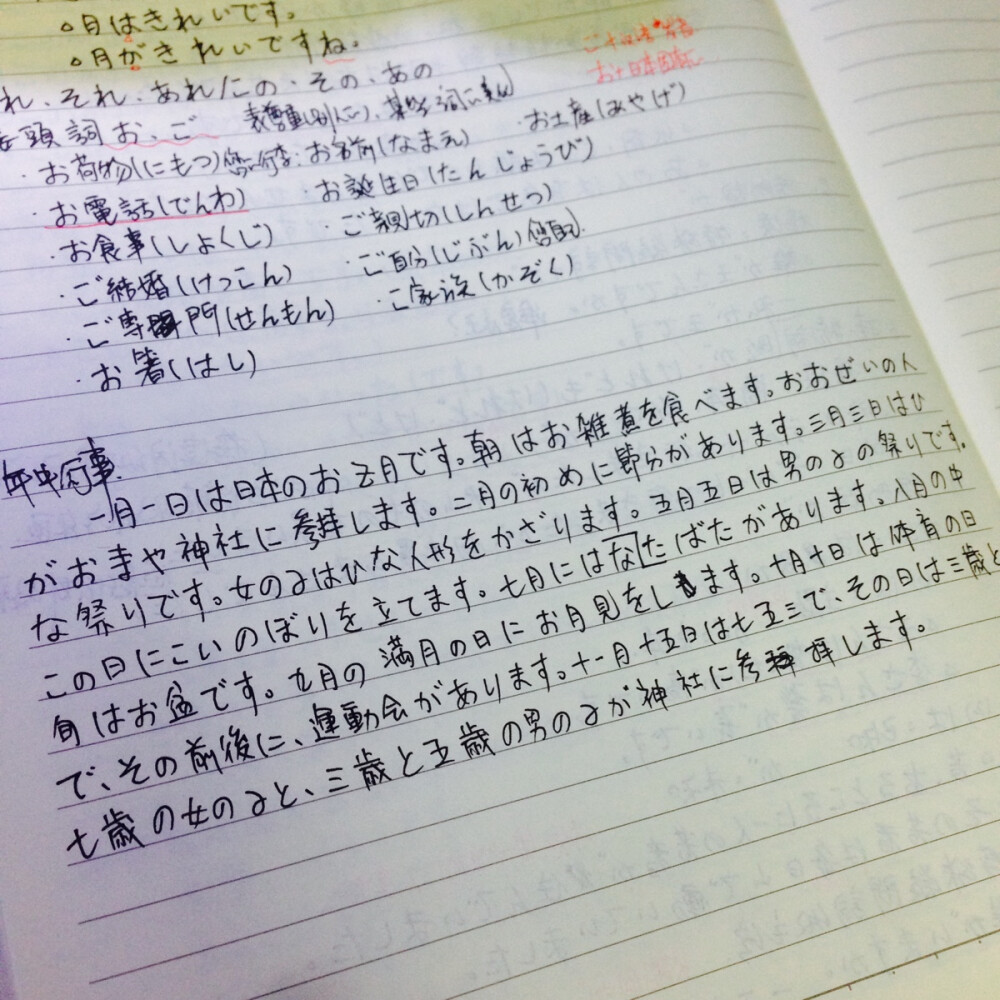 。月はきれいです。
。月がきれいですね。
れ、それ、あれたの・その・あの
頭詞お、ご
・お土産(みやげ)
・お荷物(にもつ) お名前(なまえ)
・お電話(でんわ) お誕生日(たんじょうび)
お食事(しょくじ) ・ご親切(しんせつ)
・ご結婚(けっこん) ・ご自分(じぶん)
・ご専門(せんもん) ・ご家族(かぞく)
・お箸(はし)
年中行事
一月一日は日本のお正月です。朝はお雑煮を食べます。おおぜいの人
がお寺や神社に参拝します。二月の初めに節分があります。三月三日はひ
な祭りです。女の子はひな人形をかざります。五月五日は男の子の祭りです。
この日にこいのぼりを立てます。七月にはなたばたがあります。八月の中
旬はお盆です。九月の満月の日にお月見をします。十月十日は体育の日
で、その前後に、運動会があります。十一月十五日は七五三で、その日は三歳と
七歳の女の子と、三歳と五歳の男の子が神社に参拝します。